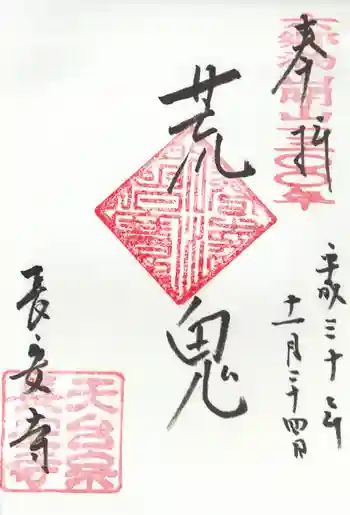 奉拝
荒鬼
平成三十年
十一月二十四日
長安寺
天台宗
長安寺